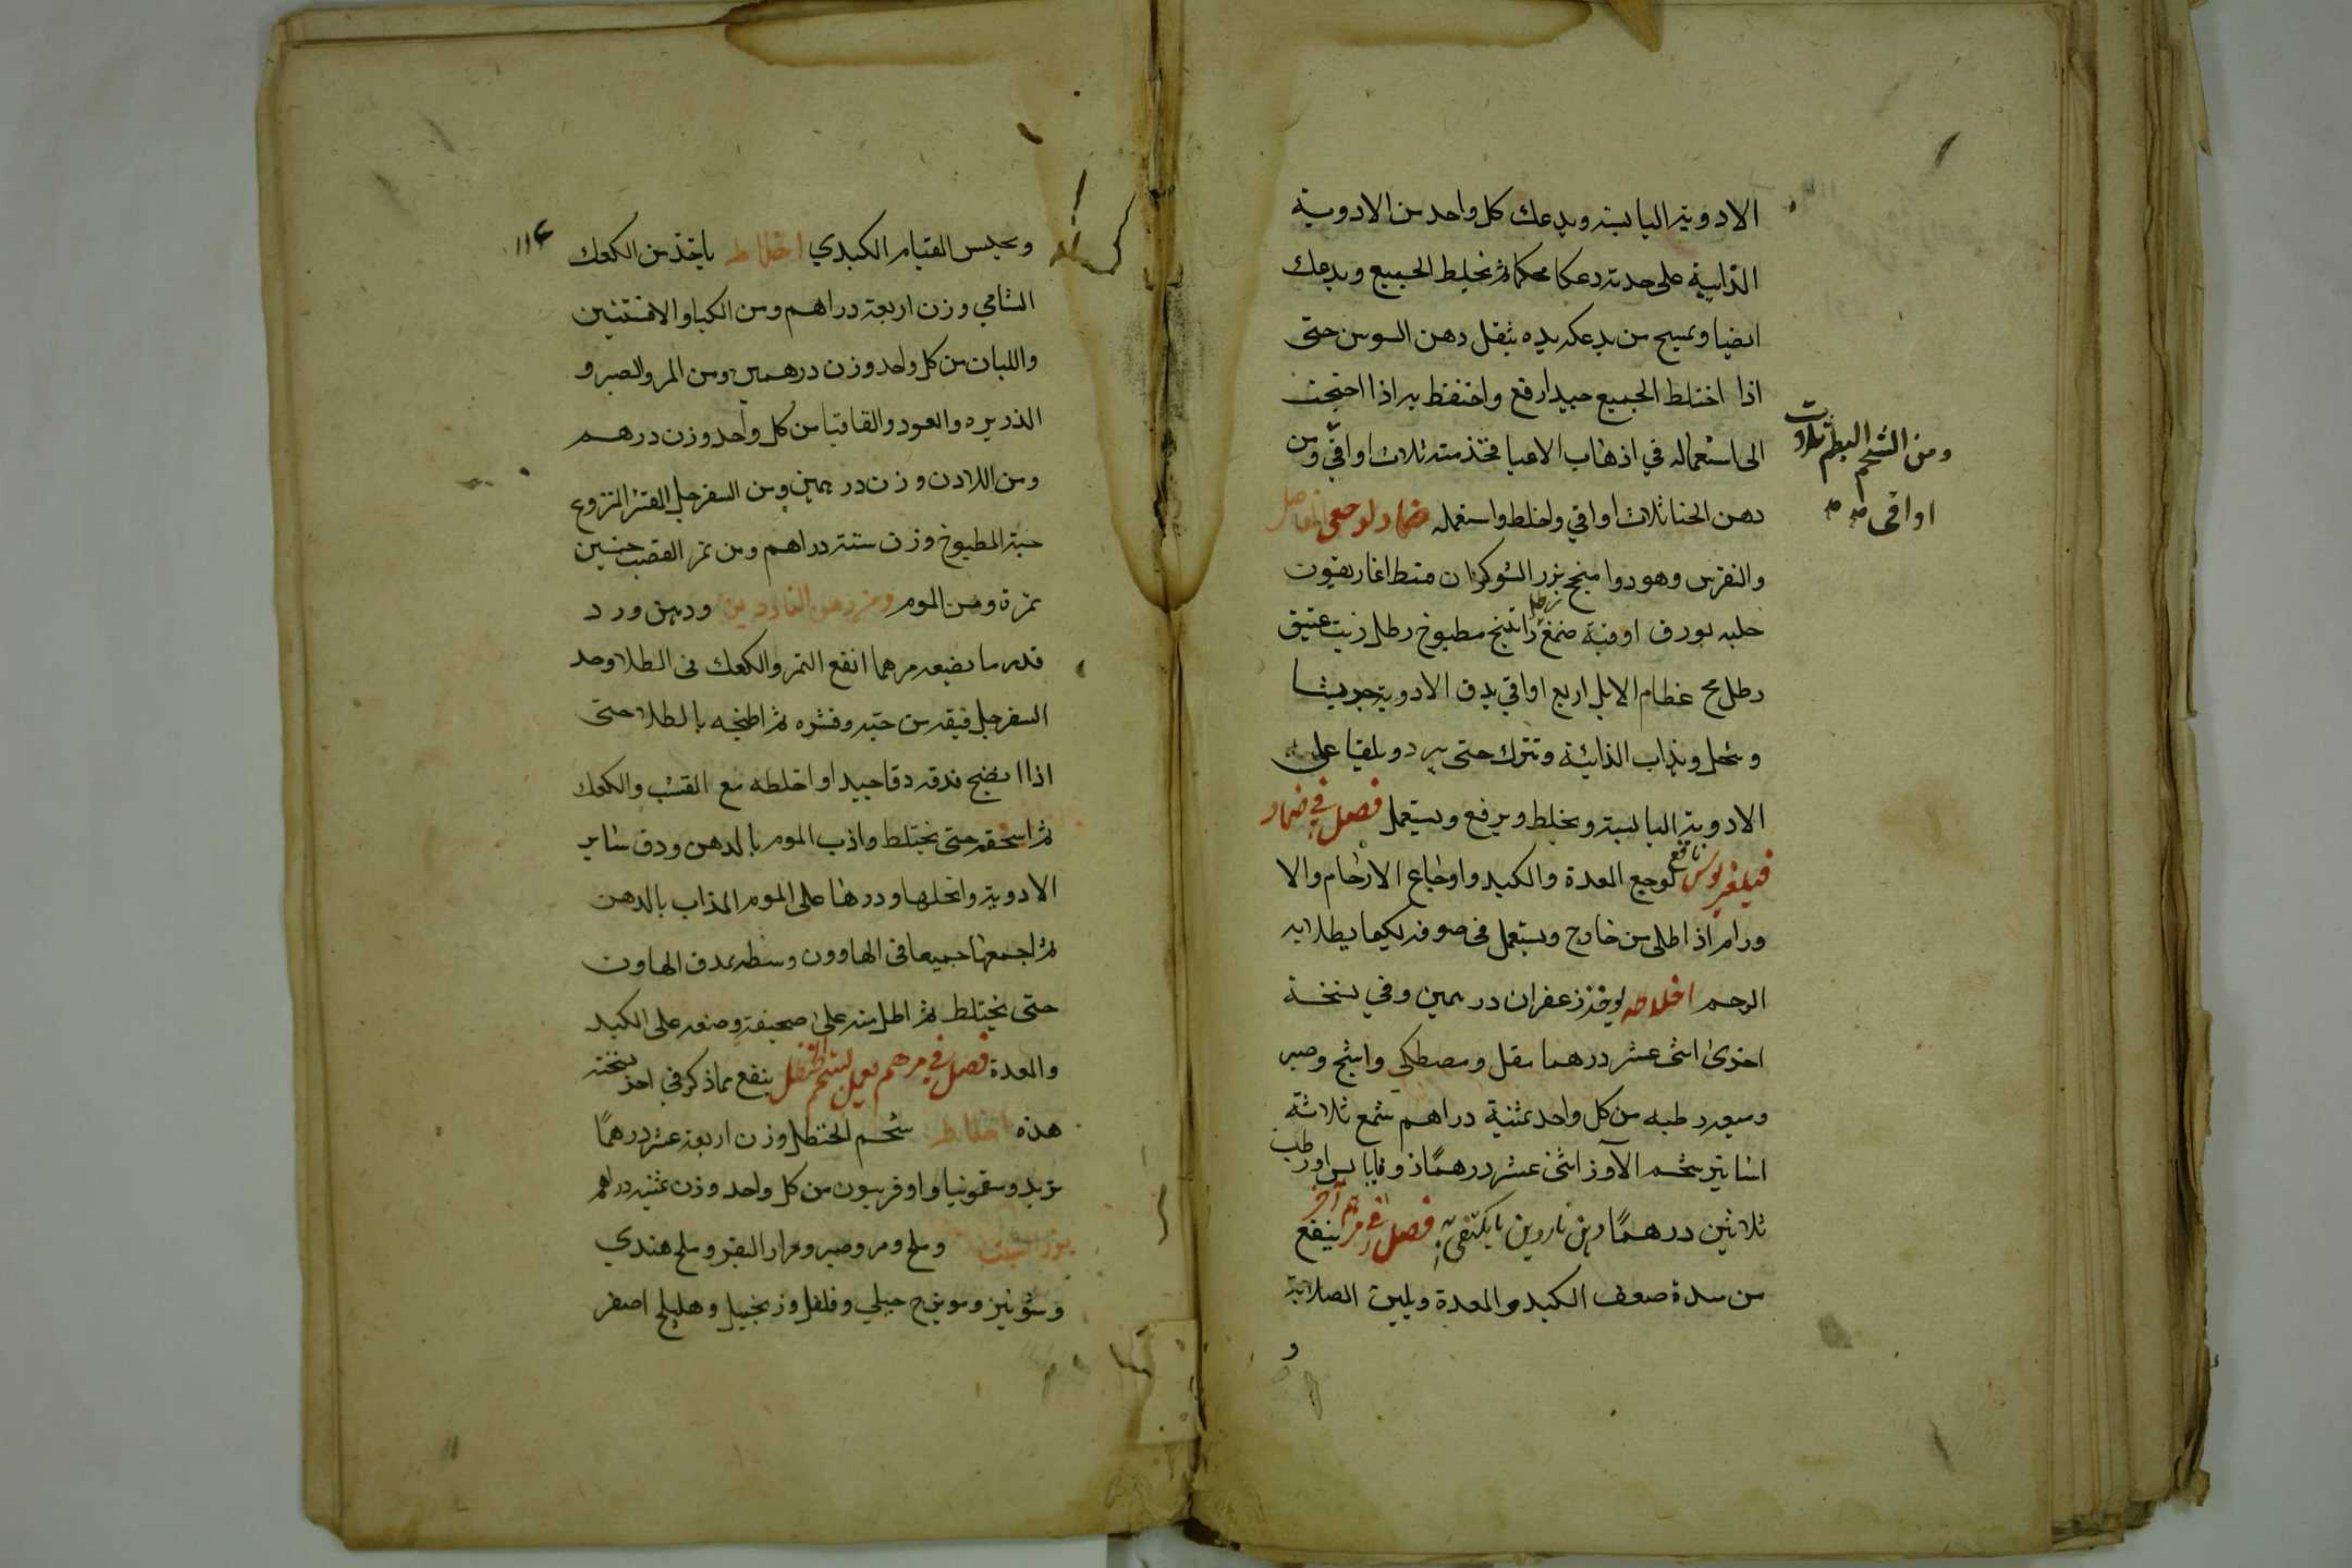 الادوية اليابسة ويدعك كل واحد من الادوية
الذايبة على حدته دعكا محكما ثم تخلط الجميع ويدعك
ايضا ويمسح من يدعكه يده بثقل دهن السوسن حتى
اذا اختلط الجميع جيدا رفع واحتفظ به اذا احتجت
الى استعماله في اذهاب الاعيا فخذ منه ثلاث اواقي ومن
ومن الشحم البط ثلاث
اواقى
دهن الحنا ثلاث اواقي واخلط واستعمله ضماد لوجعى المفاصل
والنقرس وهو دوا منجح بزر الشوكران قسط اغاريقون
حلبه بورق اوقية صمغ راتينج مطبوخ رطل زيت عتيق
رطل مخ عظام الايل اربع اواقي يدق الادوية جريشا
وتنخل ويذاب الذائبة وتترك حتى يبرد ويلقيا على
الادوية اليابسة ويخلط ويرفع ويستعمل فصل في ضماد
فيلغريوس نافع لوجع المعدة والكبد واوجاع الارحام والا
ورام اذا طلى من خارج ويستعمل فى صوفه لكيما يطلا به
الرحم اخلاطه يوخذ زعفران درهمين وفي نسخة
اخرى اثنى عشر درهما مقل ومصطكى واشج وصبر
وميعه رطبه من كل واحد ثمنية دراهم شمع ثلاثة
اساتير شحم الاوز اثنى عشر درهمًا زوفا يابس او رطب
ثلاثين درهمًا دهن ناردين ما يكتفى به فصل في مرهم آخر ينفع
من سدة ضعف الكبد والمعدة ويلين الصلابة
و
١١٤
ويحبس القيام الكبدي اخلاطه ياخذ من الكعك
الشامي وزن اربعة دراهم ومن الكيا والافسنتين
واللبان من كل واحد وزن درهمين ومن المر والصبر و
الذريره والعود والقاقيا من كل واحد وزن درهم
ومن اللادن وزن درهمين ومن السفرجل المقشر المنزوع
حبته المطبوخ وزن ستة دراهم ومن تمر القصب خمسين
تمرة ومن الموم ومن دهن الناردين ودهن ورد
قدر ما يضعه مرهما انقع التمر والكعك فى الطلا وخذ
السفرجل فنقه من حبته وقشره ثم اطبخه بالطلا حتى
اذا انضج فدقه دقا جيدا واخلطه مع القسب والكعك
ثم اسحقه حتى يختلط واذب الموم بالدهن ودق ساير
الادوية وانخلها وذرها على الموم المذاب بالدهن
ثم اجمعها جميعا فى الهاوون وسطه بمدق الهاون
حتى يختلط ثم اطل منه على صحيفة وضعه على الكبد
والمعدة فصل في مرهم يعمل بشحم الحنظل ينفع مما ذكر في اخر نسخة
هذه اخلاطه شحم الحنظل وزن اربعة عشر درهمًا
تربد وسقمونيا واوفربيون من كل واحد وزن ثمنيه دراهم
وملح ومر وصبر ومرار البقر وملح هندي
وشونيز وميويزج جبلي وفلفل وزنجبيل وهليلج اصفر